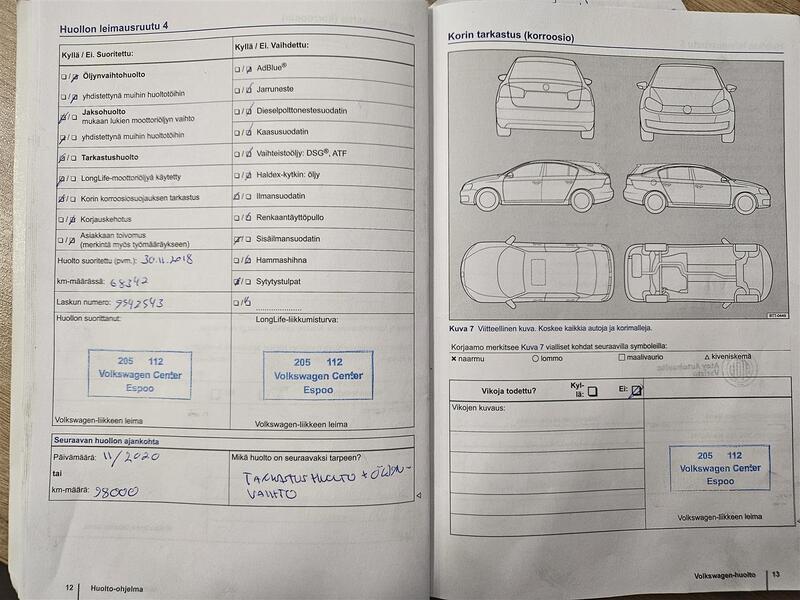 Huollon leimausruutu 4
Kyllä / Ei. Suoritettu:
Öljynvaihtohuolto
yhdistettynä muihin huoltotöihin
Jaksohuolto
mukaan lukien moottoriöljyn vaihto
yhdistettynä muihin huoltotöihin
Tarkastushuolto
LongLife-moottoriöljyä käytetty
Korin korroosiosuojauksen tarkastus
Korjauskehotus
Asiakkaan toivomus
(merkintä myös työmääräykseen)
Huolto suoritettu (pvm.): 30.11.2018
km-määrässä: 68342
Laskun numero: 9542543
Huollon suorittanut:
205 112
Volkswagen Center
Espoo
Volkswagen-liikkeen leima
Kyllä / Ei. Vaihdettu:
AdBlue®
Jarruneste
Dieselpolttonestesuodatin
Kaasusuodatin
Vaihteistoöljy: DSG®, ATF
Haldex-kytkin: öljy
Ilmansuodatin
Renkaantäyttöpullo
Sisäilmansuodatin
Hammashihna
Sytytystulpat
LongLife-liikkumisturva:
205 112
Volkswagen Center
Espoo
Volkswagen-liikkeen leima
Seuraavan huollon ajankohta
Päivämäärä: 11/2020
tai
km-määrä: 98000
Mikä huolto on seuraavaksi tarpeen?
TARKASTUSHUOLTO + ÖLJYN-
VAIHTO
12 Huolto-ohjelma
Korin tarkastus (korroosio)
BTT-0449
Kuva 7 Viitteellinen kuva. Koskee kaikkia autoja ja korimalleja.
Korjaamo merkitsee Kuva 7 vialliset kohdat seuraavilla symboleilla:
× naarmu ○ lommo □ maalivaurio △ kiveniskemä
Vikoja todettu? Kyl-
lä: Ei:
Vikojen kuvaus:
205 112
Volkswagen Center
Espoo
Volkswagen-liikkeen leima
Volkswagen-huolto 13